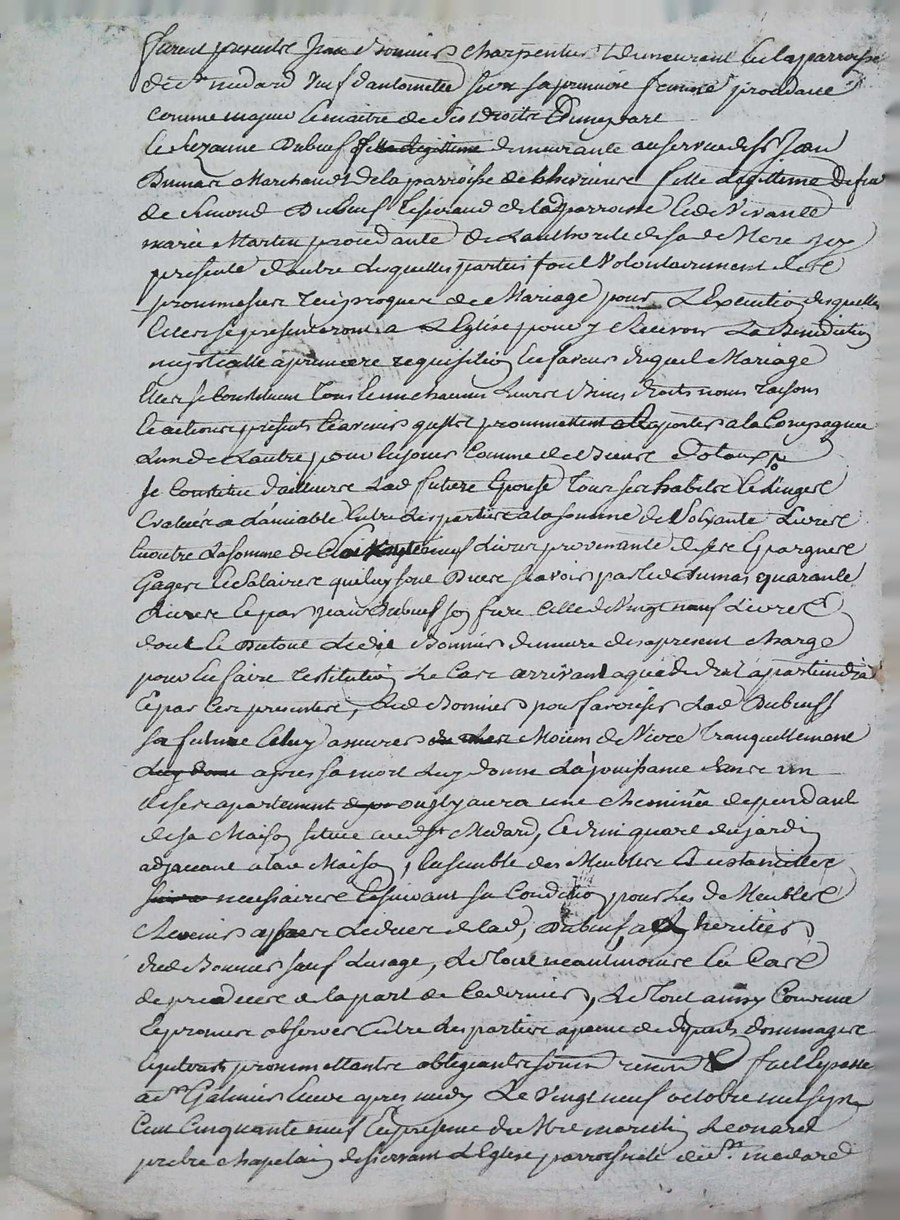 furent presents Jean Bonnier charpentier demeurant en la parroisse
de St medard veuf d'antoinette sa premiere femme procedant
comme majeur le maitre de ses droits d'une part
et Suzanne Duboeuf fille legitime demeurante au service de Sr Jean
Dumas Marchand de la parroisse de fille legitime de feu
de Simond Duboeuf de lad parroisse et de vivante
marie Martin procedante de l'authorité de sad Mere icy
presente d'autre lesquelles parties font volontairement
promesses reciproques de Mariage pour l'Execution desquelles
elles se presenteront a l'Eglise pour y recevoir la Benediction
nuptialle a premiere requisition en faveur duquel Mariage
elles se constituent tous leurs biens droits noms raisons
et actions presents et avenir quelles promettent aporter a la Compagnie
L'un de L'autre pour en jouir comme de Biens Dotaux
se constitue d'ailleurs lad future Epouse tous ses habits et Linges
evalués a l'amiable entre les parties a la somme de soixante Livres
en outre la somme de soixante neuf Livres provenante de ses Epargnes
Gages et salaires qui luy sont Dues scavoir par led Dumas quarante
Livres et par Jean Duboeuf son frere celle de vingt neuf Livres
dont et du tout Ledit Bonnier demeure des a present charge
pour en faire restitution le Cas arrivant a qui de droit apartiendra
Et par ces presentes, Led Bonnier pour favoriser Lad Duboeuf
sa future et luy assurer Moien de vivre tranquillement
Luy donne apres sa mort Luy donne La jouissance dans un
de ses apartement ou il y aura une cheminée dependant
de sa Maison situee aud St Medard, et d'un quart du jardin
adjacent a lad Maison, ensemble des Meubles et ustancilles
necessaires et suivant sa Condition pour les d. Meubles
revenir apres le deces de lad, Duboeuf aux heritiers
dud Bonnier sauf L'usage, Le tout neantmoins en Cas
de predeces de la part de ce dernier, Le tout ainsy Convenu
et promis observer entre les parties a peine de depens dommages
et interets promettantes obligeantes soumis renon fait et passé
a St Galmier Etude apres midy Le vingt neuf octobre mil sept
Cent Cinquante neuf En presence de Mre Leonard
prebtre chapelain desservant L'Eglise parroissiale de St. medard